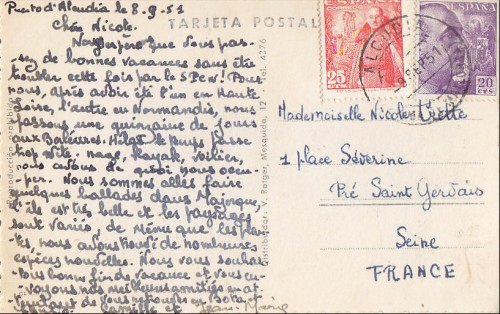 Puerto d'Alcudia le 8.9.51
TARJETA POSTAL
Chère Nicole.
Nous espérons que vous pas-
-sez de bonnes vacances sans être
fois par le SPCN! Pour
nous, après avoir été l'un en Haute
Loire, l'autre en Normandie, nous
passons une quinzaine de jours
aux Baléares. Hélas le temps passe
trop vite: nage, Kayak, voilier,
nous avons de quoi nous occu-
-per. Nous sommes allés faire
quelques ballades dans Majorque
l'île est très belle et les paysages
sont variés, de même que les plan-
-tes, nous avons trouvé de nombreuses
espèces nouvelles. Nous vous souhai-
-tons bonne fin de vacances et vous en-
-voyons nos meilleures amitiés en at-
-tendant de vous retrouver en
Camille et Jean-Marie
Reproducción prohibida
Distribuidor: V. Rotger, Mesquida, 12
Rel. 4376
ESPAÑA
CORREOS
25 CTS
ESPAÑA
20 CTS
ALCUDIA
SEP.51
Mademoiselle Nicole
1 place Séverine
Pré Saint Gervais
Seine
FRANCE